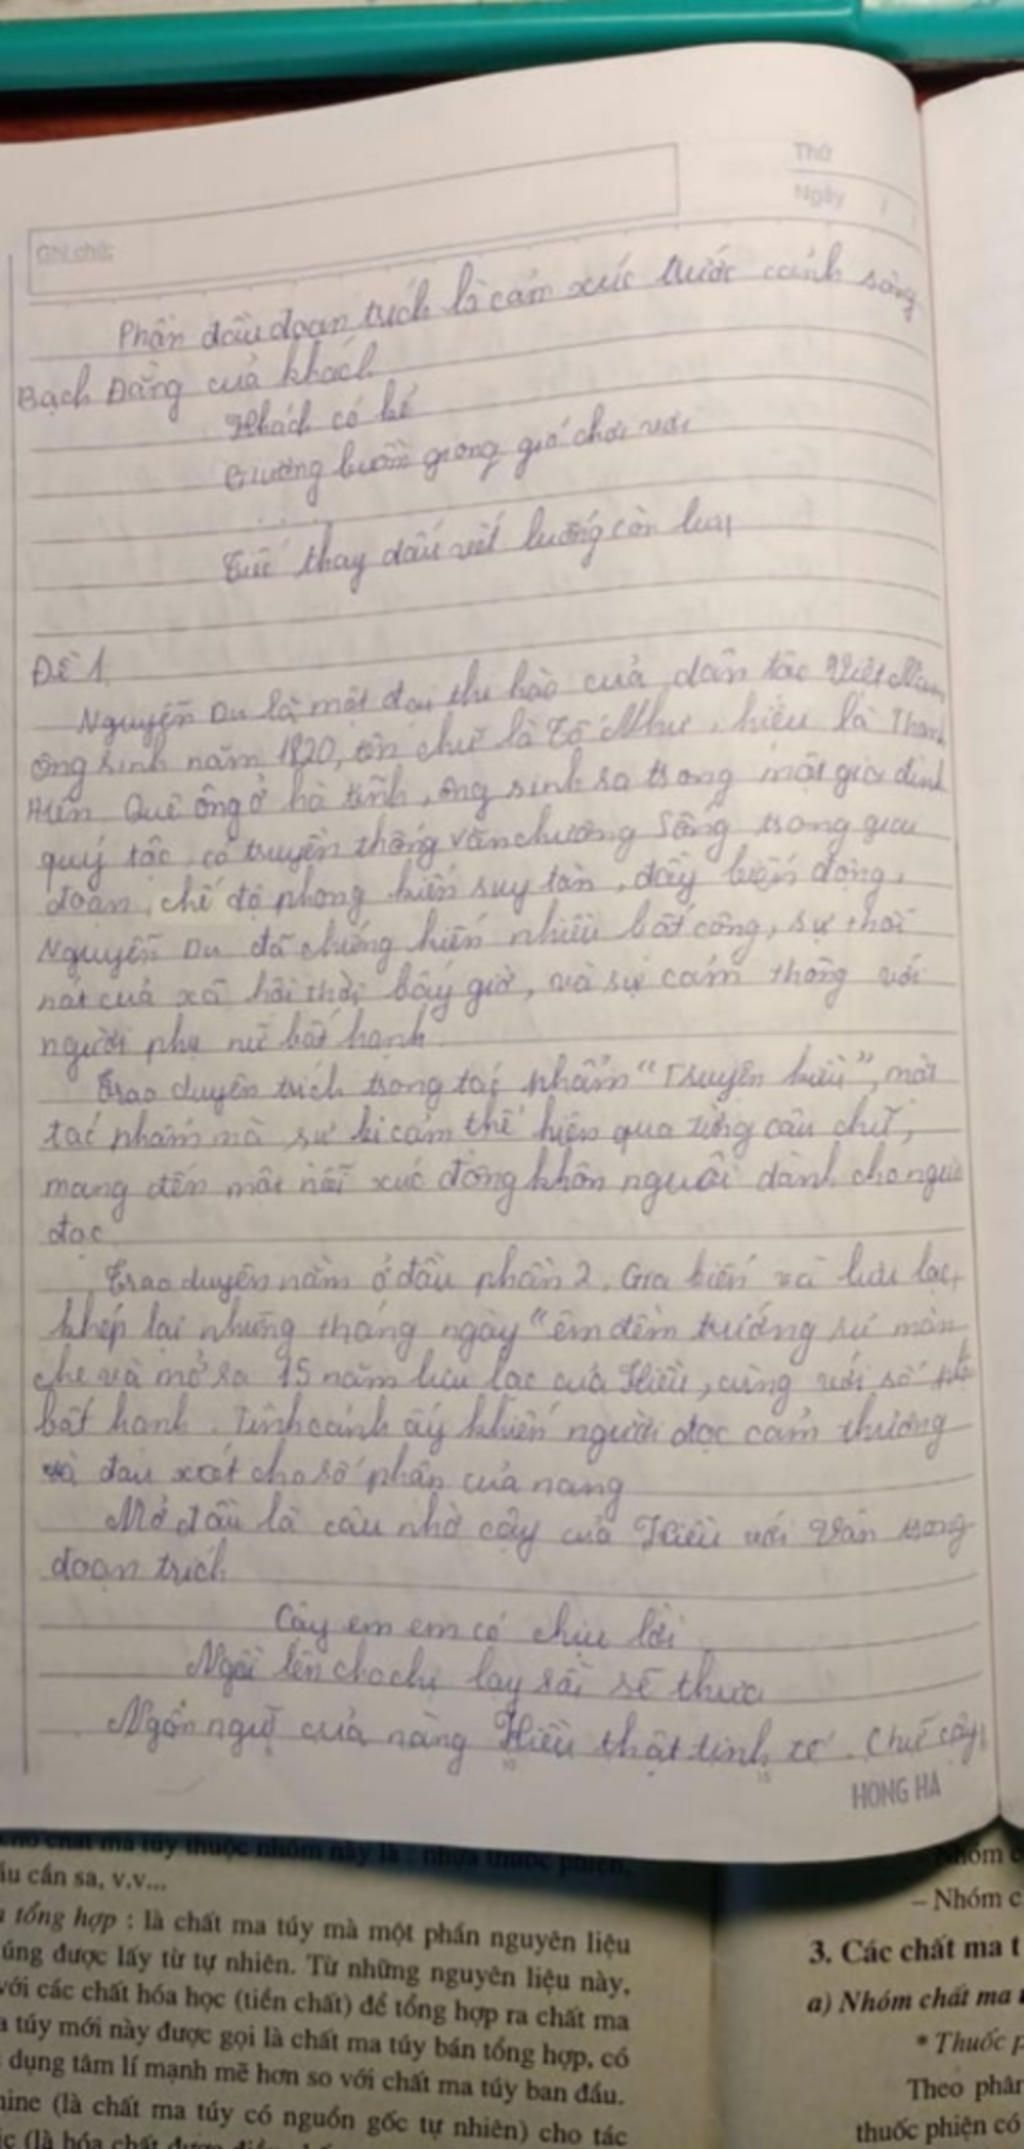 Thứ
Ngày / /
Ghi chú:
Phần đầu đoạn trích là cảm xúc trước cảnh sông
Bạch Đằng của khách
Khách có kẻ
Giương buồm giong gió chơi vơi
...
Tiếc thay dấu vết luống còn lưu
Đề 1
Nguyễn Du là một đại thi hào của dân tộc Việt Nam,
ông sinh năm 1820, tên chữ là Tố Như, hiệu là Thanh
Hiên. Quê ông ở hà tĩnh, ông sinh ra trong một gia đình
quý tộc, có truyền thống văn chương. Sống trong giai
đoạn, chế độ phong kiến suy tàn, đầy biến động,
Nguyễn Du đã chứng kiến nhiều bất công, sự thối
nát của xã hội thời bấy giờ, và sự cảm thông với
người phụ nữ bất hạnh
Trao duyên trích trong tác phẩm "Truyện kiều", một
tác phẩm mà sự bi cảm thể hiện qua từng câu chữ,
mang đến một nỗi xúc động khôn nguôi dành cho người
đọc
Trao duyên nằm ở đầu phần 2. Gia biến và lưu lạc,
khép lại những tháng ngày "êm đềm trướng rủ màn
che và mở ra 15 năm lưu lạc của Kiều, cùng với số
bất hạnh. Tình cảnh ấy khiến người đọc cảm thương
và đau xót cho số phận của nàng
Mở đầu là câu nhờ cậy của Kiều với Vân trong
đoạn trích
Cậy em em có chịu lời
Ngồi lên cho chị lạy rồi sẽ thưa
Ngôn ngữ của nàng Kiều thật tinh tế. Chữ cậy
HONG HA
cho chất ma túy thuộc nhóm này là : nhựa thuốc phiện,
ầu cần sa, v.v...
tổng hợp : là chất ma túy mà một phần nguyên liệu
úng được lấy từ tự nhiên. Từ những nguyên liệu này,
với các chất hóa học (tiền chất) để tổng hợp ra chất ma
a túy mới này được gọi là chất ma túy bán tổng hợp, có
dụng tâm lí mạnh mẽ hơn so với chất ma túy ban đầu.
hine (là chất ma túy có nguồn gốc tự nhiên) cho tác
ic (là hóa chất được
Nhóm c
– Nhóm c
3. Các chất ma t
a) Nhóm chất ma
* Thuốc p
Theo phân
thuốc phiện có